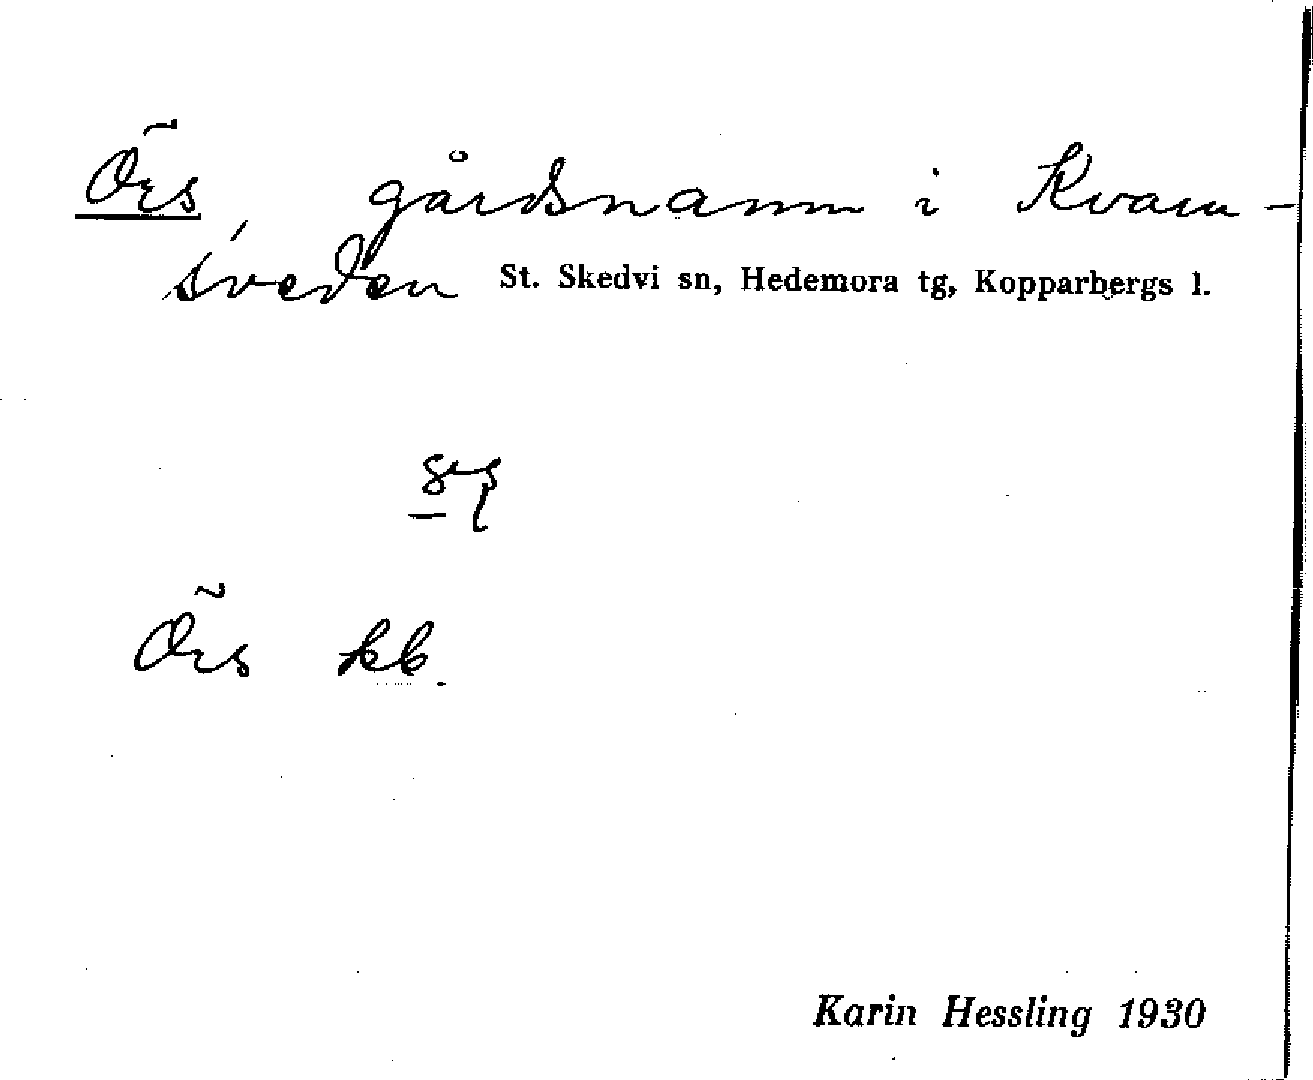 Örs, gårdsnamn i Kvarn-
sveden St. Skedvi sn, Hedemora tg, Kopparbergs l.
Örs kb.
Karin Hessling 1930